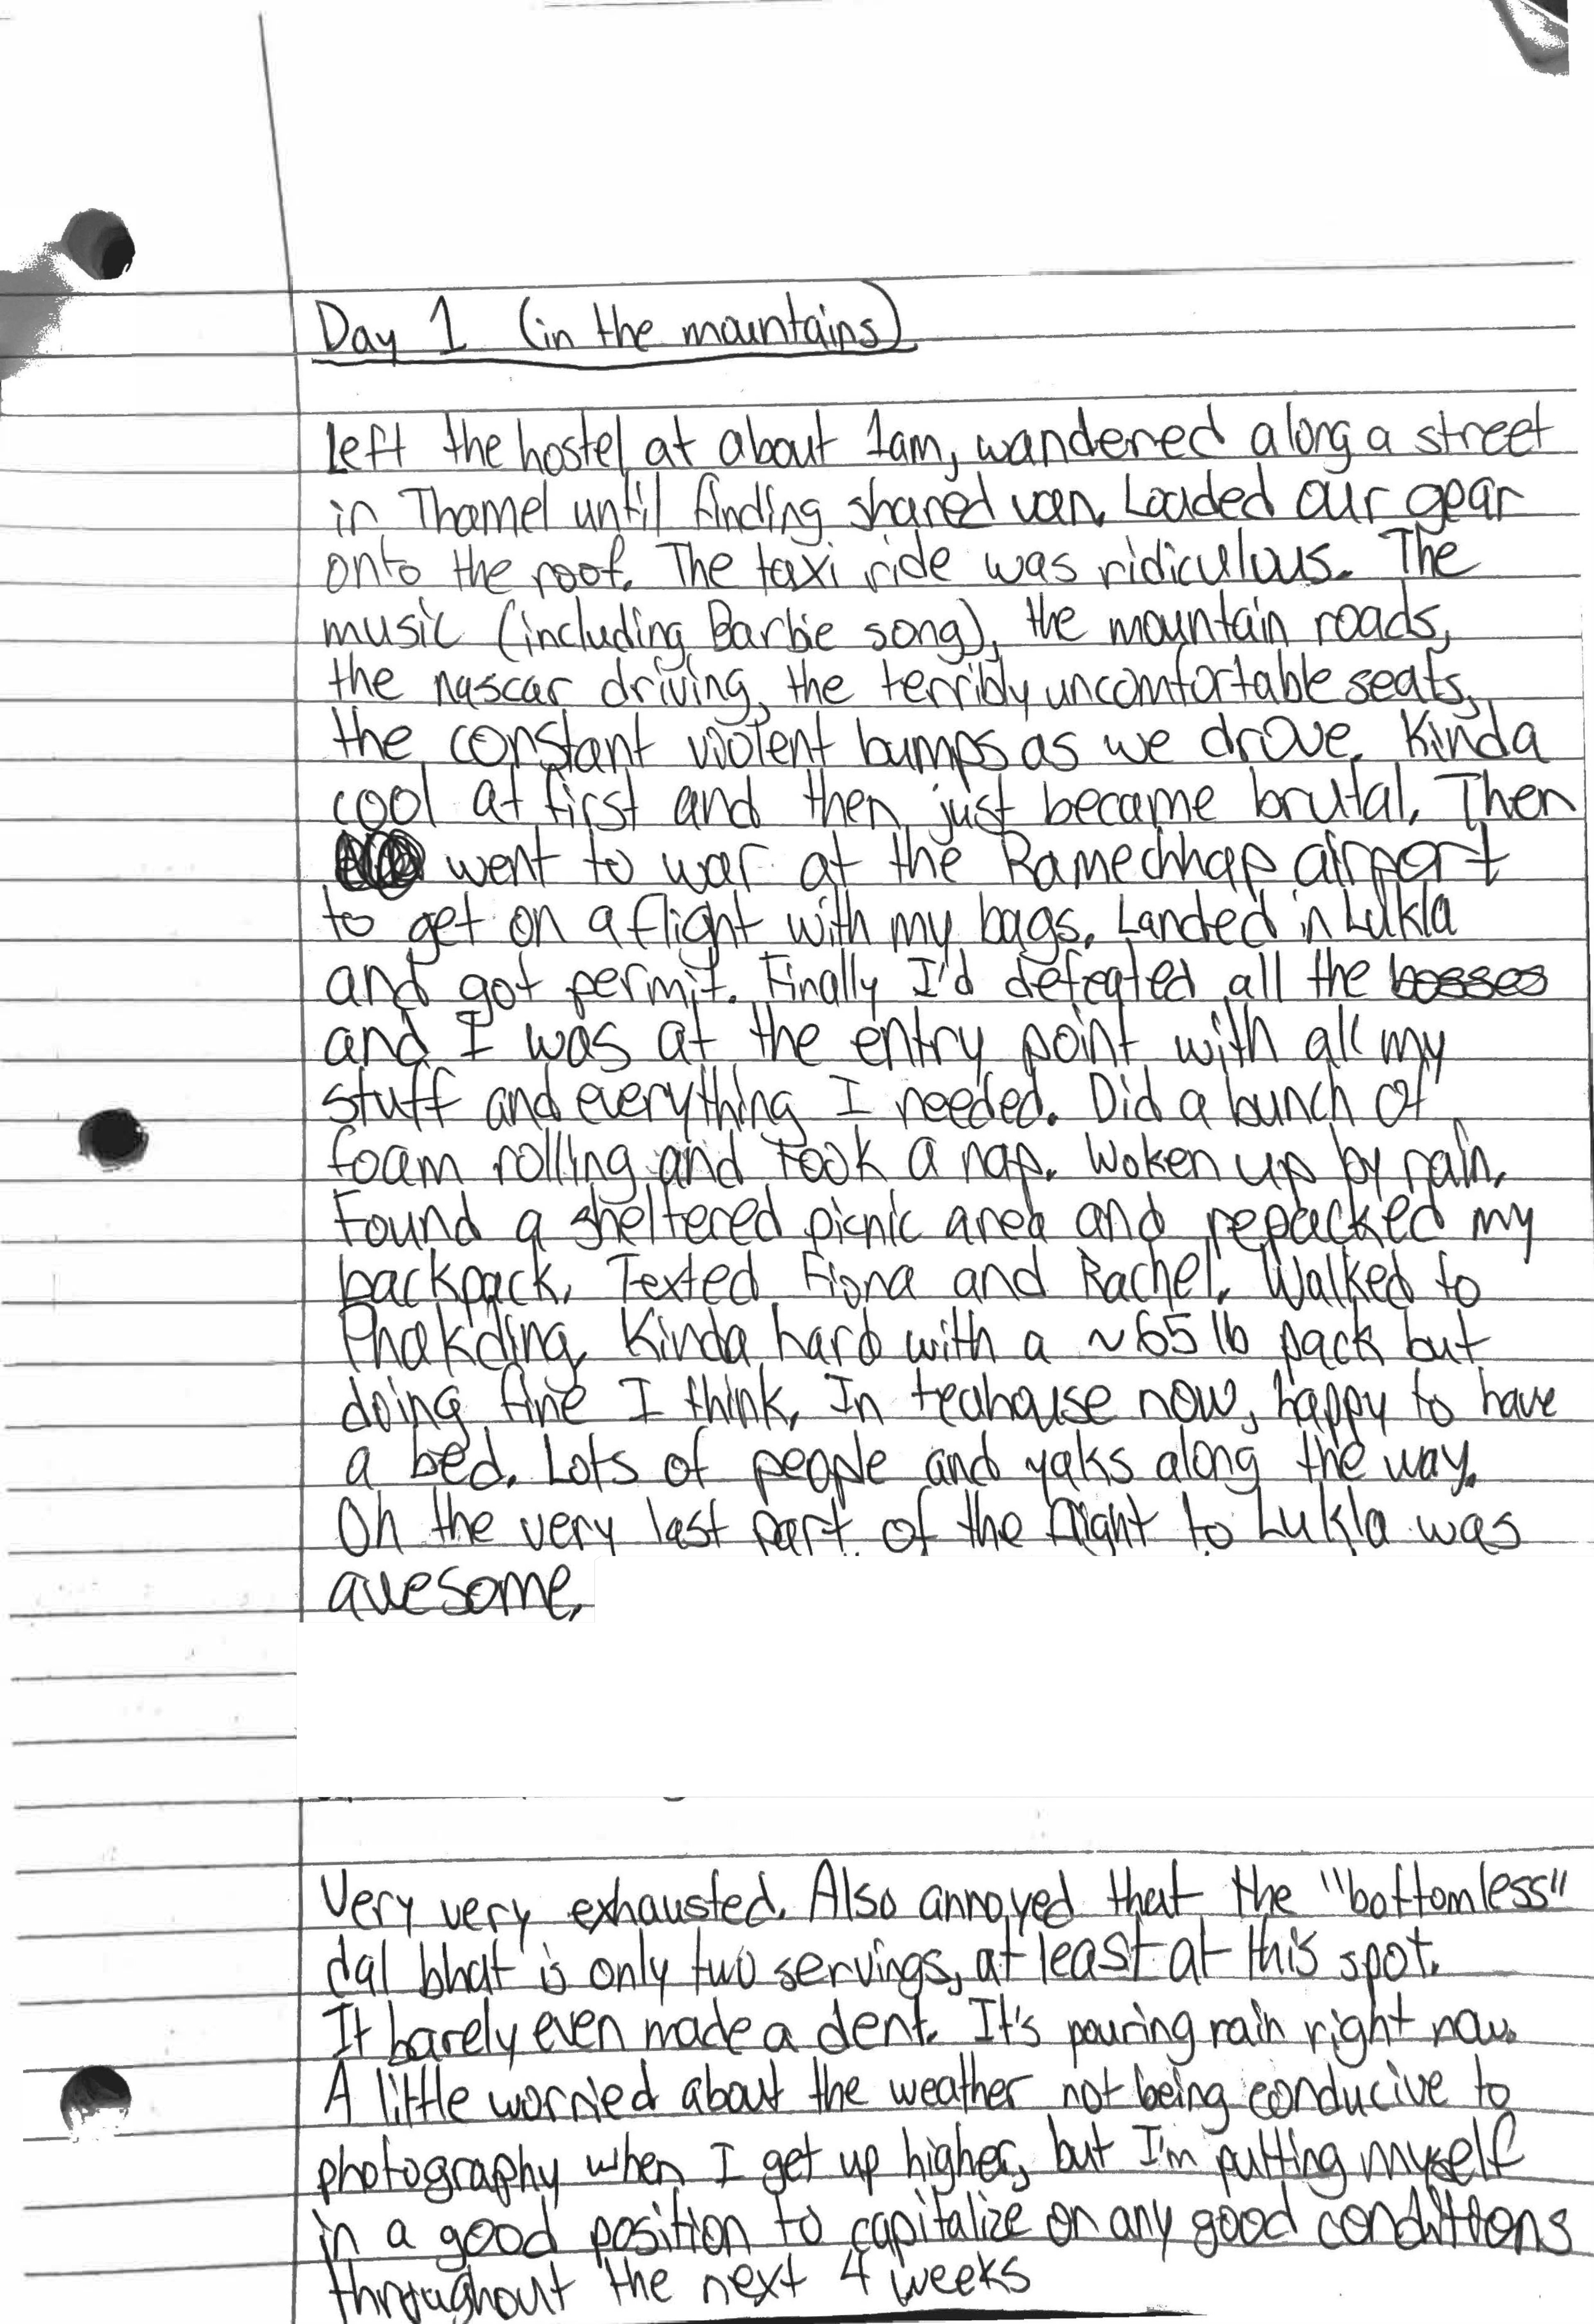 Day 1 (in the mountains)
Left the hostel at about 1am, wandered along a street
in Thamel until finding shared van. Loaded our gear
onto the roof. The taxi ride was ridiculous. The
music (including Barbie song), the mountain roads,
the nascar driving, the terribly uncomfortable seats,
the constant violent bumps as we drove. Kinda
cool at first and then just became brutal. Then
went to war at the Ramechhap airport
to get on a flight with my bags. Landed in Lukla
and got permit. Finally I'd defeated all the bosses
and I was at the entry point with all my
stuff and everything I needed. Did a bunch of
foam rolling and took a nap. Woken up by rain.
Found a sheltered picnic area and repacked my
backpack. Texted Fiona and Rachel. Walked to
Phakding. Kinda hard with a ~65 lb pack but
doing fine I think. In teahouse now, happy to have
a bed. Lots of people and yaks along the way.
Oh the very last part of the flight to Lukla was
awesome.
Very very exhausted. Also annoyed that the "bottomless"
dal bhat is only two servings, at least at this spot.
It barely even made a dent. It's pouring rain right now.
A little worried about the weather not being conducive to
photography when I get up higher, but I'm putting myself
in a good position to capitalize on any good conditions
throughout the next 4 weeks